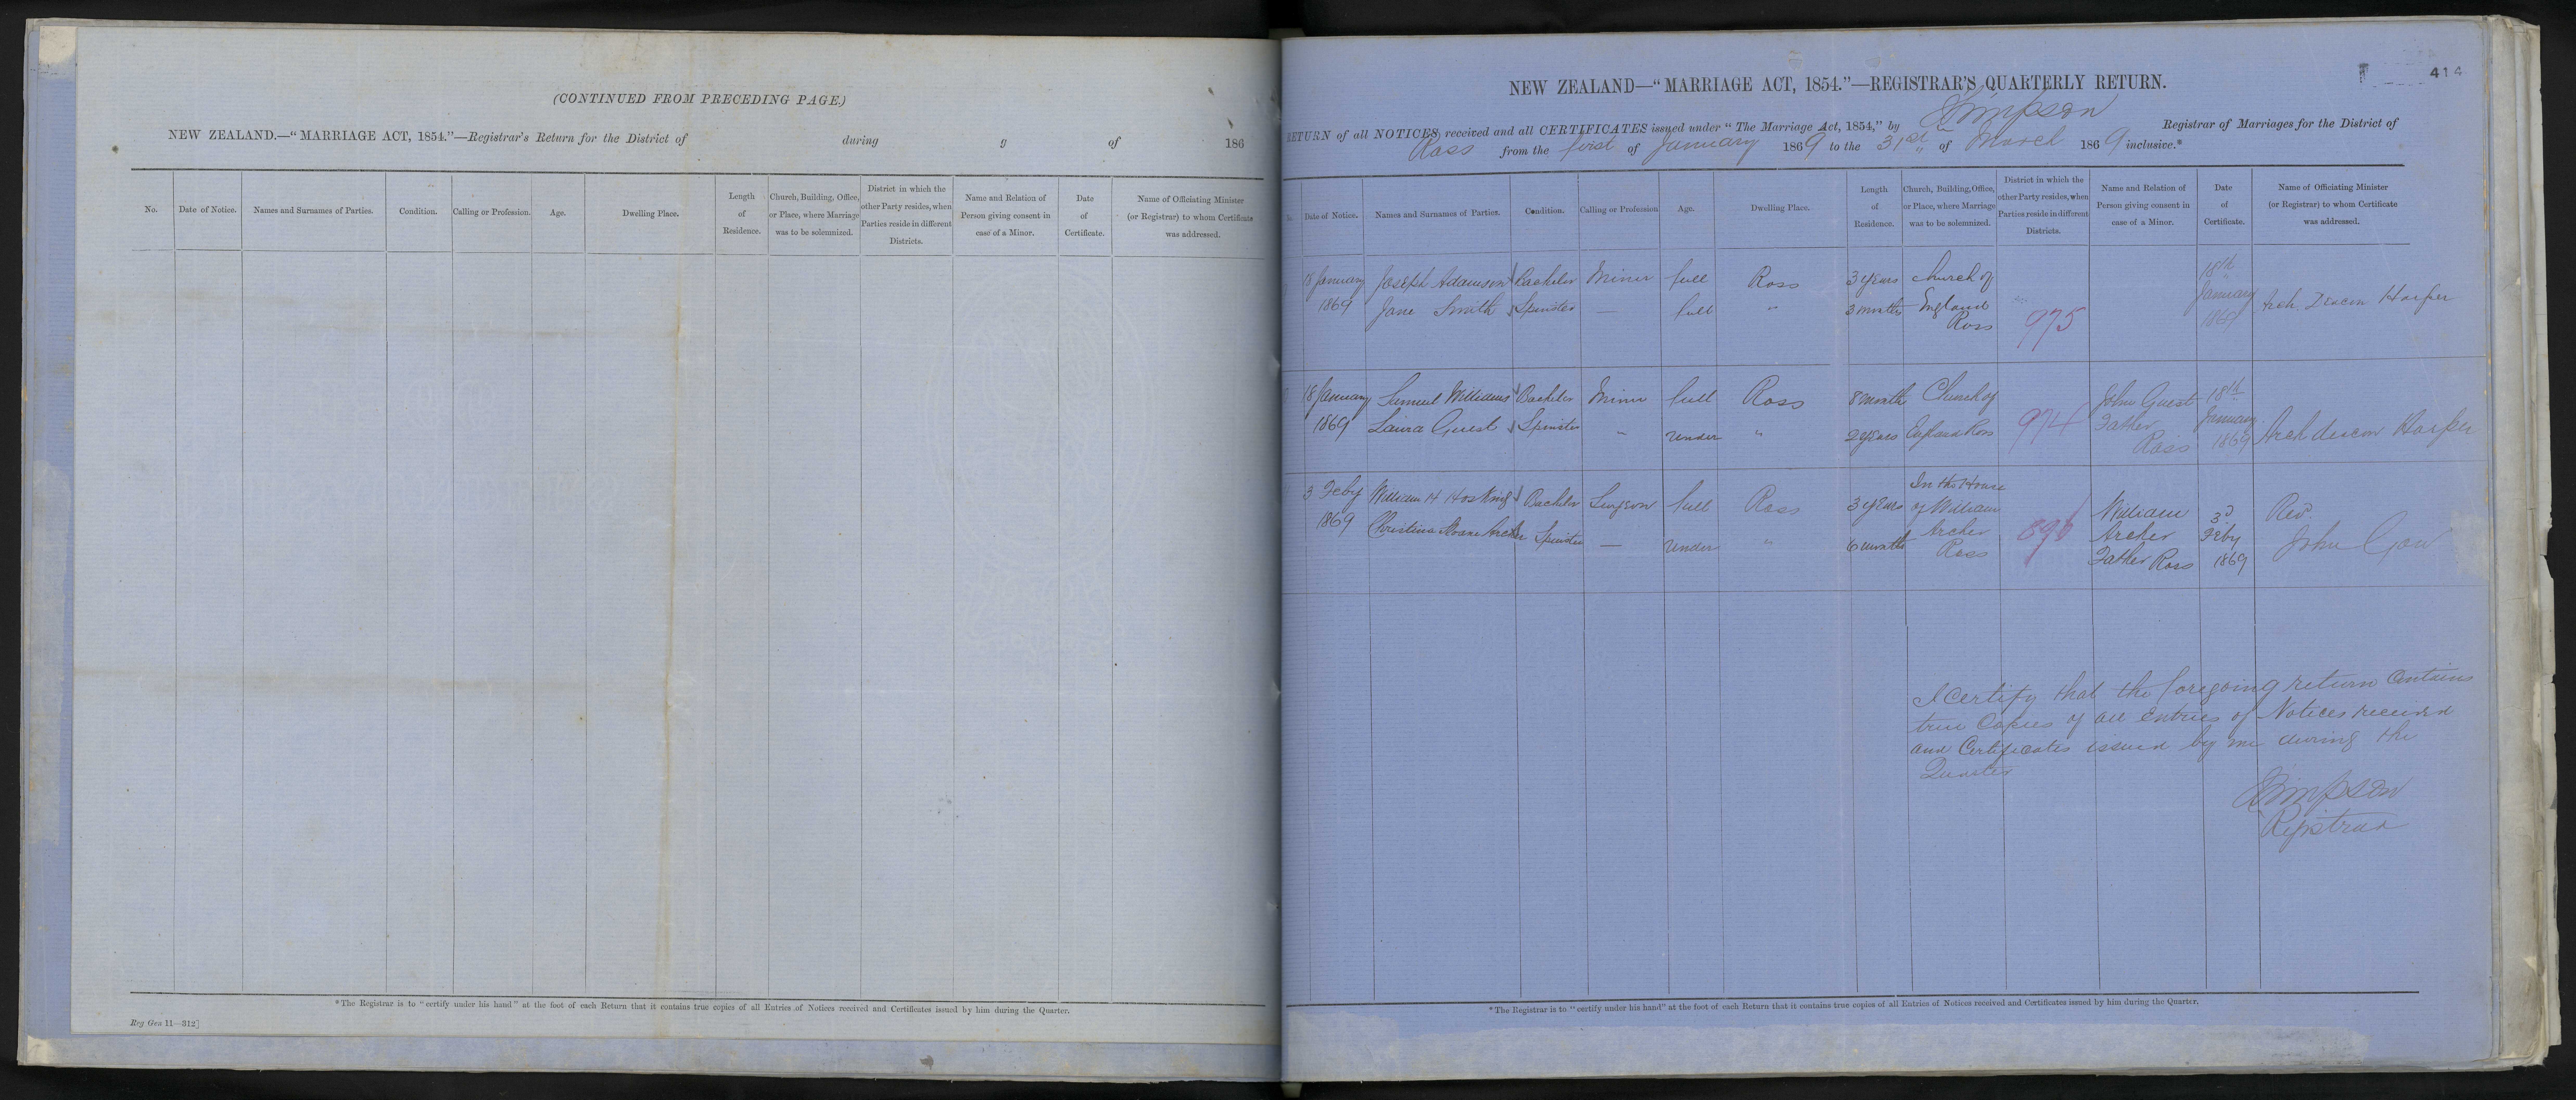 (CONTINUED FROM PRECEDING PAGE.)
NEW ZEALAND.—"MARRIAGE ACT, 1854."—Registrar's Return for the District of during of 186
No.
Date of Notice.
Names and Surnames of Parties.
Condition.
Calling or Profession.
Age.
Dwelling Place.
Length
of
Residence.
Church, Building, Office,
or Place, where Marriage
was to be solemnized.
District in which the
other Party resides, when
Parties reside in different
Districts.
Name and Relation of
Person giving consent in
case of a Minor.
Date
of
Certificate.
Name of Officiating Minister
(or Registrar) to whom Certificate
was addressed.
*The Registrar is to "certify under his hand" at the foot of each Return that it contains true copies of all Entries of Notices received and Certificates issued by him during the Quarter.
Reg Gen 11—312]
414
NEW ZEALAND—"MARRIAGE ACT, 1854."—REGISTRAR'S QUARTERLY RETURN.
RETURN of all NOTICES received and all CERTIFICATES issued under "The Marriage Act, 1854," by Simpson Registrar of Marriages for the District of
Ross from the first of January 1869 to the 31st of March 1869 inclusive.*
Date of Notice.
Names and Surnames of Parties.
Condition.
Calling or Profession
Age.
Dwelling Place.
Length
of
Residence.
Church, Building, Office,
or Place, where Marriage
was to be solemnized.
District in which the
other Party resides, when
Parties reside in different
Districts.
Name and Relation of
Person giving consent in
case of a Minor.
Date
of
Certificate.
Name of Officiating Minister
(or Registrar) to whom Certificate
was addressed.
18 January
1869
Joseph Adamson
Jane Smith
Bachelor
Spinster
Miner
—
full
full
Ross
"
3 years
3 months
Church of
England
Ross
975
18th
January
1869
Arch. Deacon Harper
18 January
1869
Samuel Williams
Laura Guest
Bachelor
Spinster
Miner
"
full
under
Ross
"
8 month
2 years
Church of
England Ross
974
John Guest
Father
Ross
18th
January
1869
Arch deacon Harper
3 Feby
1869
William H Hosking
Christina Sloane Archer
Bachelor
Spinster
Surgeon
—
full
under
Ross
"
3 years
6 months
In the House
of William
Archer
Ross
William
Archer
Father Ross
3d
Feby
1869
Rev.
John Gow
I certify that the foregoing return contains
true Copies of all Entries of Notices received
and Certificates issued by me during the
Quarter
Simpson
Registrar
*The Registrar is to "certify under his hand" at the foot of each Return that it contains true copies of all Entries of Notices received and Certificates issued by him during the Quarter.